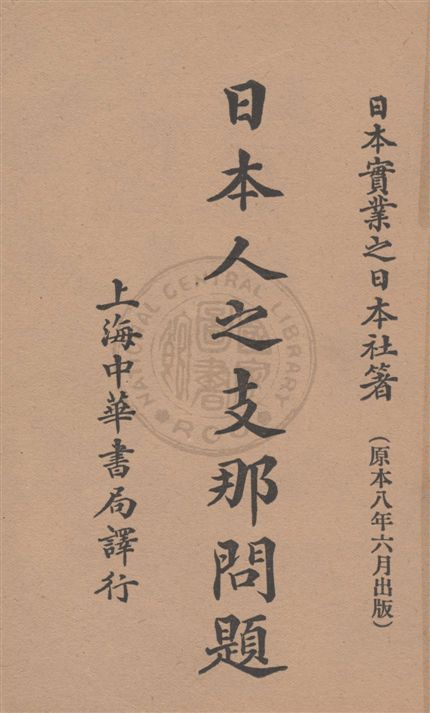 日本實業之日本社箸
（原本八年六月出版）
日本人之支那問題
上海中華書局譯行
NATIONAL CENTRAL LIBRARY
ROC
國家圖書館